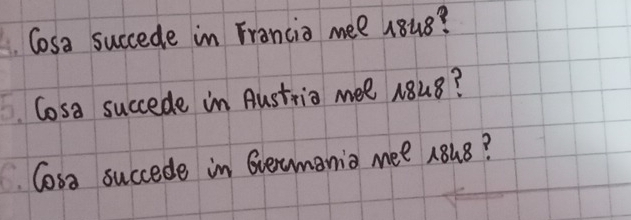 4. Cosa succede in Francia nel 1848?
5. Cosa succede in Austria nel 1848?
6. Cosa succede in Germania nel 1848?